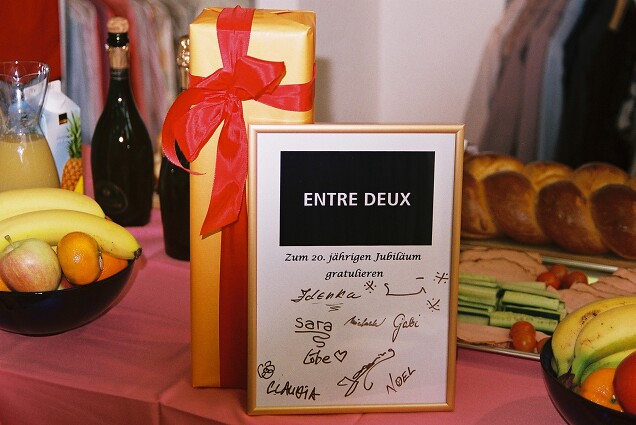 ENTRE DEUX
Zum 20. jährigen Jubiläum
gratulieren
Zdenka
Sara Michael Gabi
Tobe
CLAUDIA NOEL